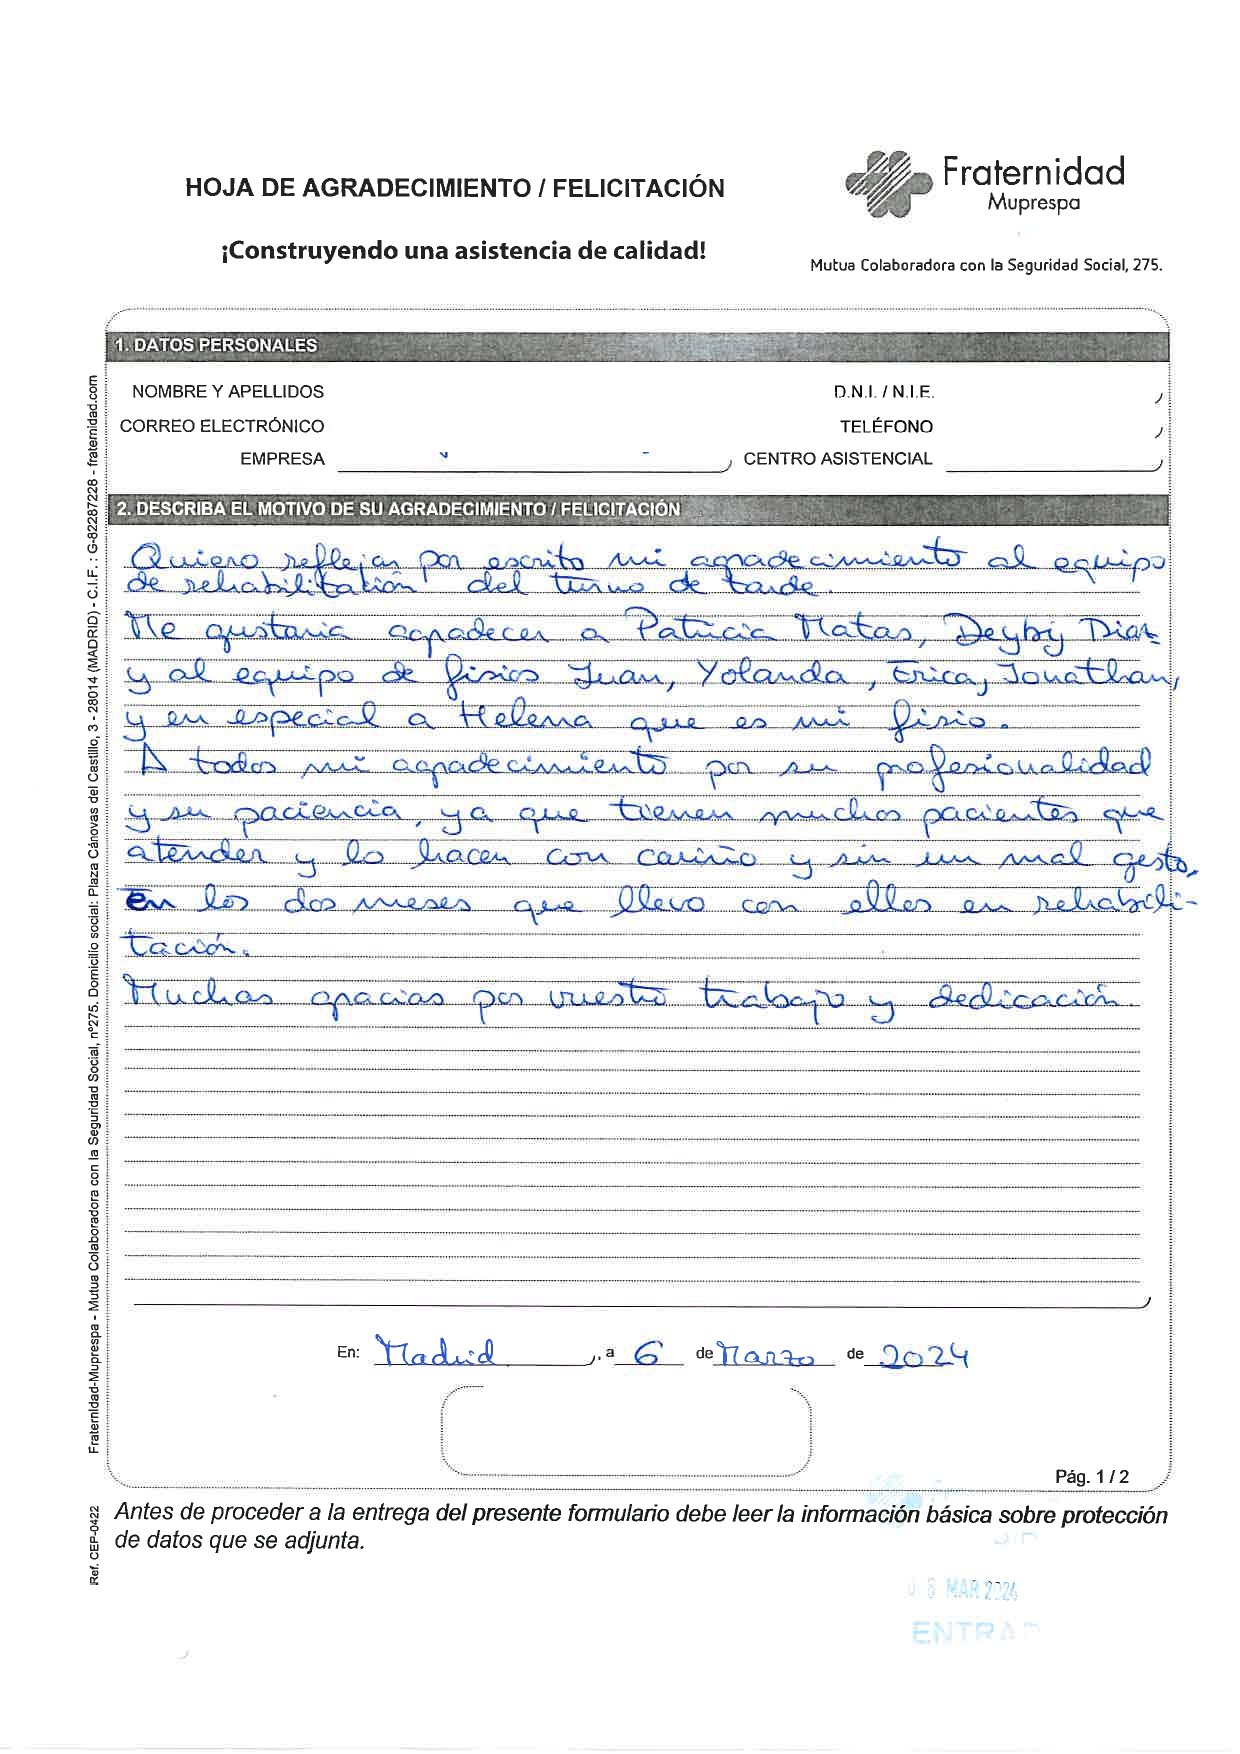 HOJA DE AGRADECIMIENTO / FELICITACIÓN
¡Construyendo una asistencia de calidad!
Fraternidad
Muprespa
Mutua Colaboradora con la Seguridad Social, 275.
1. DATOS PERSONALES
NOMBRE Y APELLIDOS
D.N.I. / N.I.E.
CORREO ELECTRÓNICO
TELÉFONO
EMPRESA
CENTRO ASISTENCIAL
2. DESCRIBA EL MOTIVO DE SU AGRADECIMIENTO / FELICITACIÓN
Quiero reflejar por escrito mi agradecimiento al equipo
de rehabilitación del turno de tarde.
Me gustaria agradecer a Patricia Matas, Deyby Diaz
y al equipo de fisios Juan, Yolanda, Erica, Jonathan,
y en especial a Helena que es mi fisio.
A todos mi agradecimiento por su profesionalidad
y su paciencia, ya que tienen muchos pacientes que
atender y lo hacen con cariño y sin un mal gesto,
En los dos meses que llevo con elles en rehabili-
tación.
Muchas gracias por vuestro trabajo y dedicación.
En: Madrid, a 6 de Marzo de 2024
Pág. 1 / 2
Antes de proceder a la entrega del presente formulario debe leer la información básica sobre protección
de datos que se adjunta.
Fraternidad-Muprespa - Mutua Colaboradora con la Seguridad Social, nº275. Domicilio social: Plaza Cánovas del Castillo, 3 - 28014 (MADRID) - C.I.F. : G-82287228 - fraternidad.com
Ref. CEP-0422
6 MAR 2024